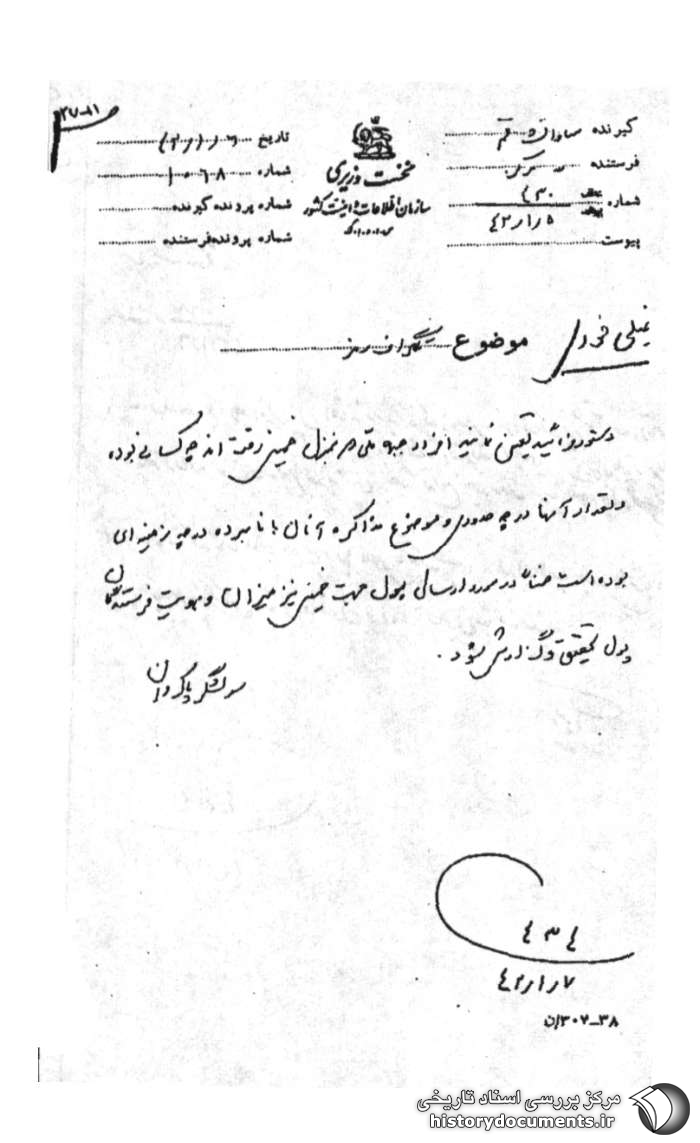 ۲۷-۸۱
گیرنده ساواک قم
فرستنده مرکز
شماره ۴۳۰
۴۲/۱/۵
پیوست
نخست وزیری
سازمان اطلاعات و امنیت کشور
س.ا.و.ا.ک
تاریخ
شماره ۱۰۶۸
شماره پرونده گیرنده
شماره پرونده فرستنده
خیلی فوری
موضوع تلگراف رمز
دستور فرمائید تعیین نمایند افراد جبهه ملی در منزل خمینی رفته اند چه کسانی بوده
و تعداد آنها در چه حدودی و موضوع مذاکره آنان با نامبرده در چه زمینه ای
بوده است ضمنا در مورد ارسال پول جهت خمینی نیز میزان و هویت فرستندگان
پول تحقیق و گزارش شود.
سرلشگر پاکروان
۴۳۴
۴۲/۱/۷
۳۸-۳۰۷/ن
مرکز بررسی اسناد تاریخی
historydocuments.ir